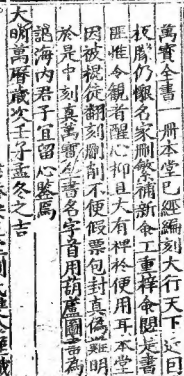 萬寶全書一冊本堂已經編刻大行天下近因
板朦仍懇名家刪繁補新僉工重梓僉閱是書
匪惟令觀者醒心抑且大有裨於便用耳本堂
因被棍徒翻刻刪削不便假票包封真偽難明
於是中刻真萬寶全書名字音用葫蘆圖書為
記海內君子宜留心鑒焉
大明萬曆歲次壬子孟冬之吉